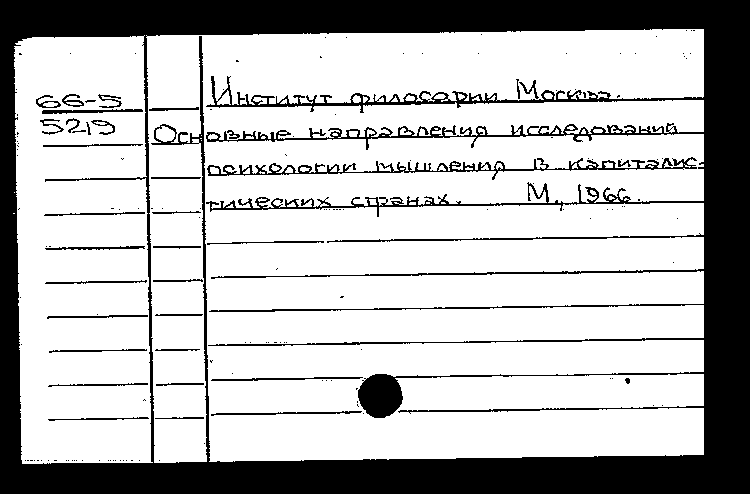 Институт философии. Москва.
66-5
5219
Основные направления исследований
психологии мышления в капиталис-
тических странах. М., 1966.